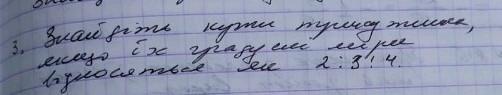 3. Знайдіть кути трикутника,
якщо їх градусні міри
відносяться як 2:3:4.